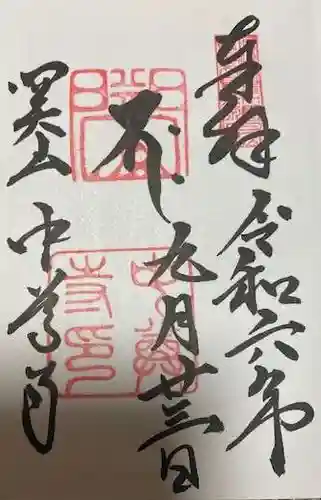 奉拝 令和六年
九月廿三日
関山 中尊寺
中尊
寺印